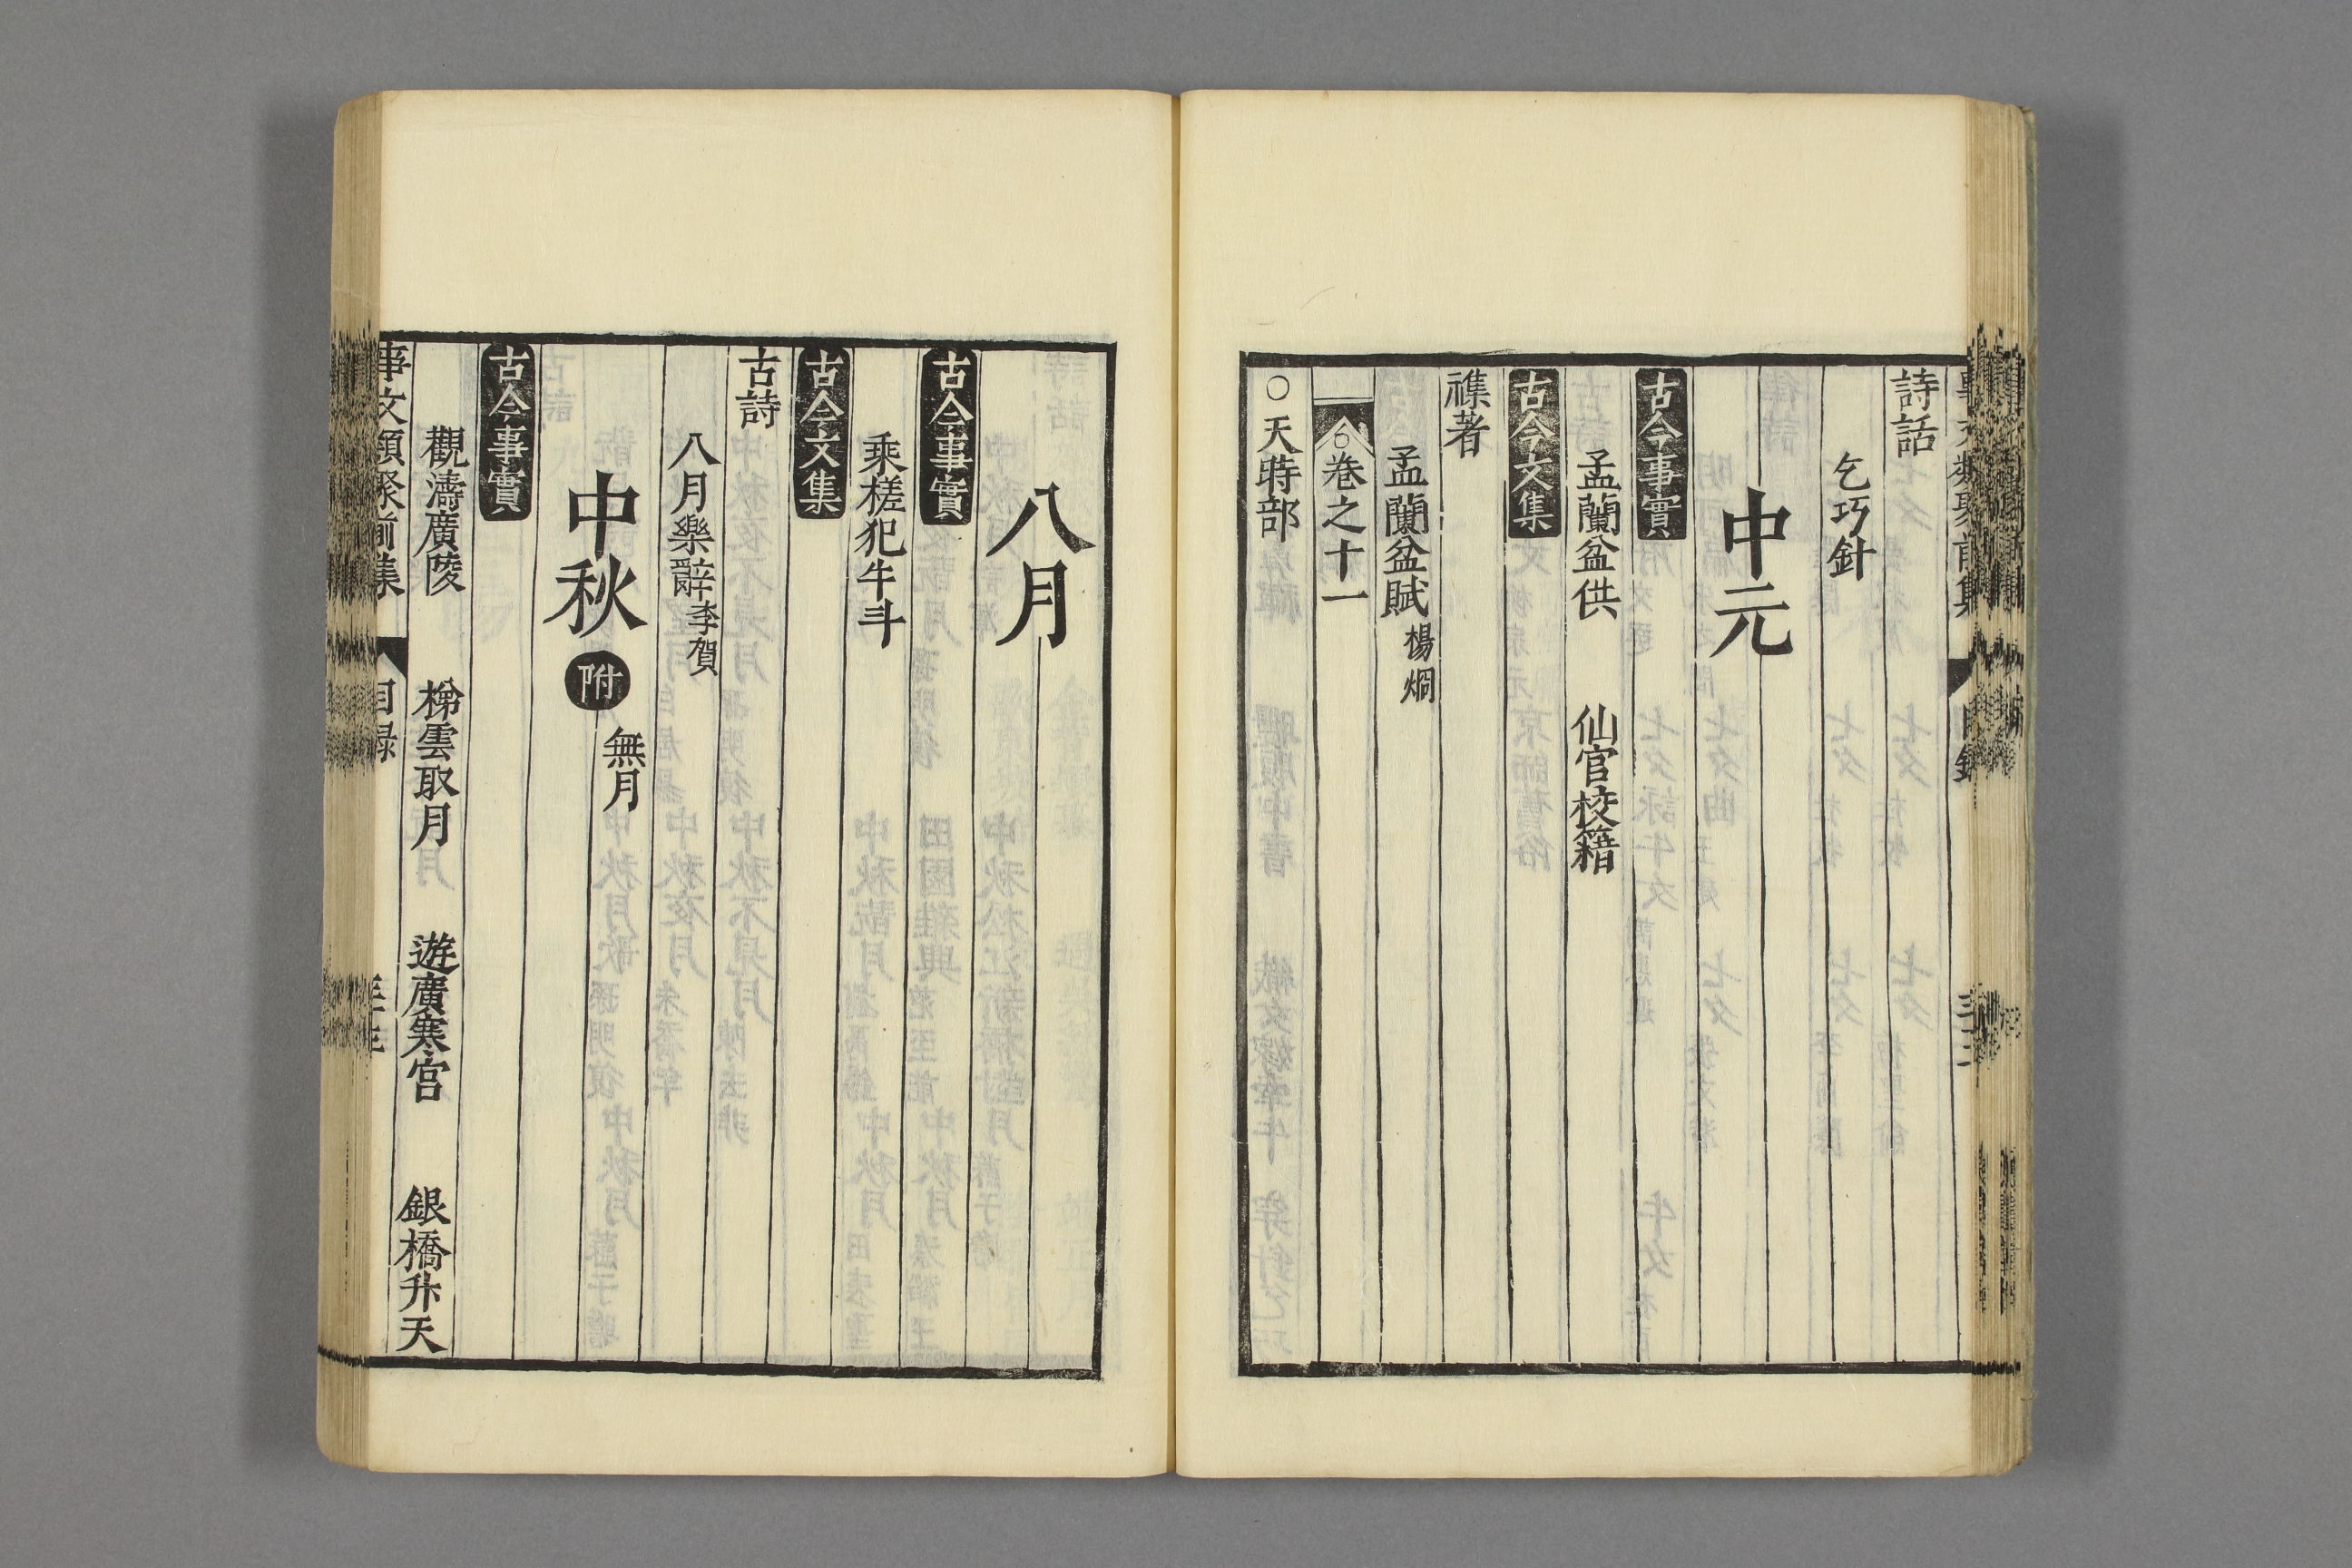 詩話
乞巧針
中元
古今事實
盂蘭盆供　仙官校籍
古今文集
襍著
盂蘭盆賦 楊烱
卷之十一
○天時部
八月
古今事實
乘槎犯牛斗
古今文集
古詩
八月樂辭 李賀
中秋 附 無月
古今事實
觀濤廣陵　梯雲取月　遊廣寒宮　銀橋升天
事文類聚前集　目録